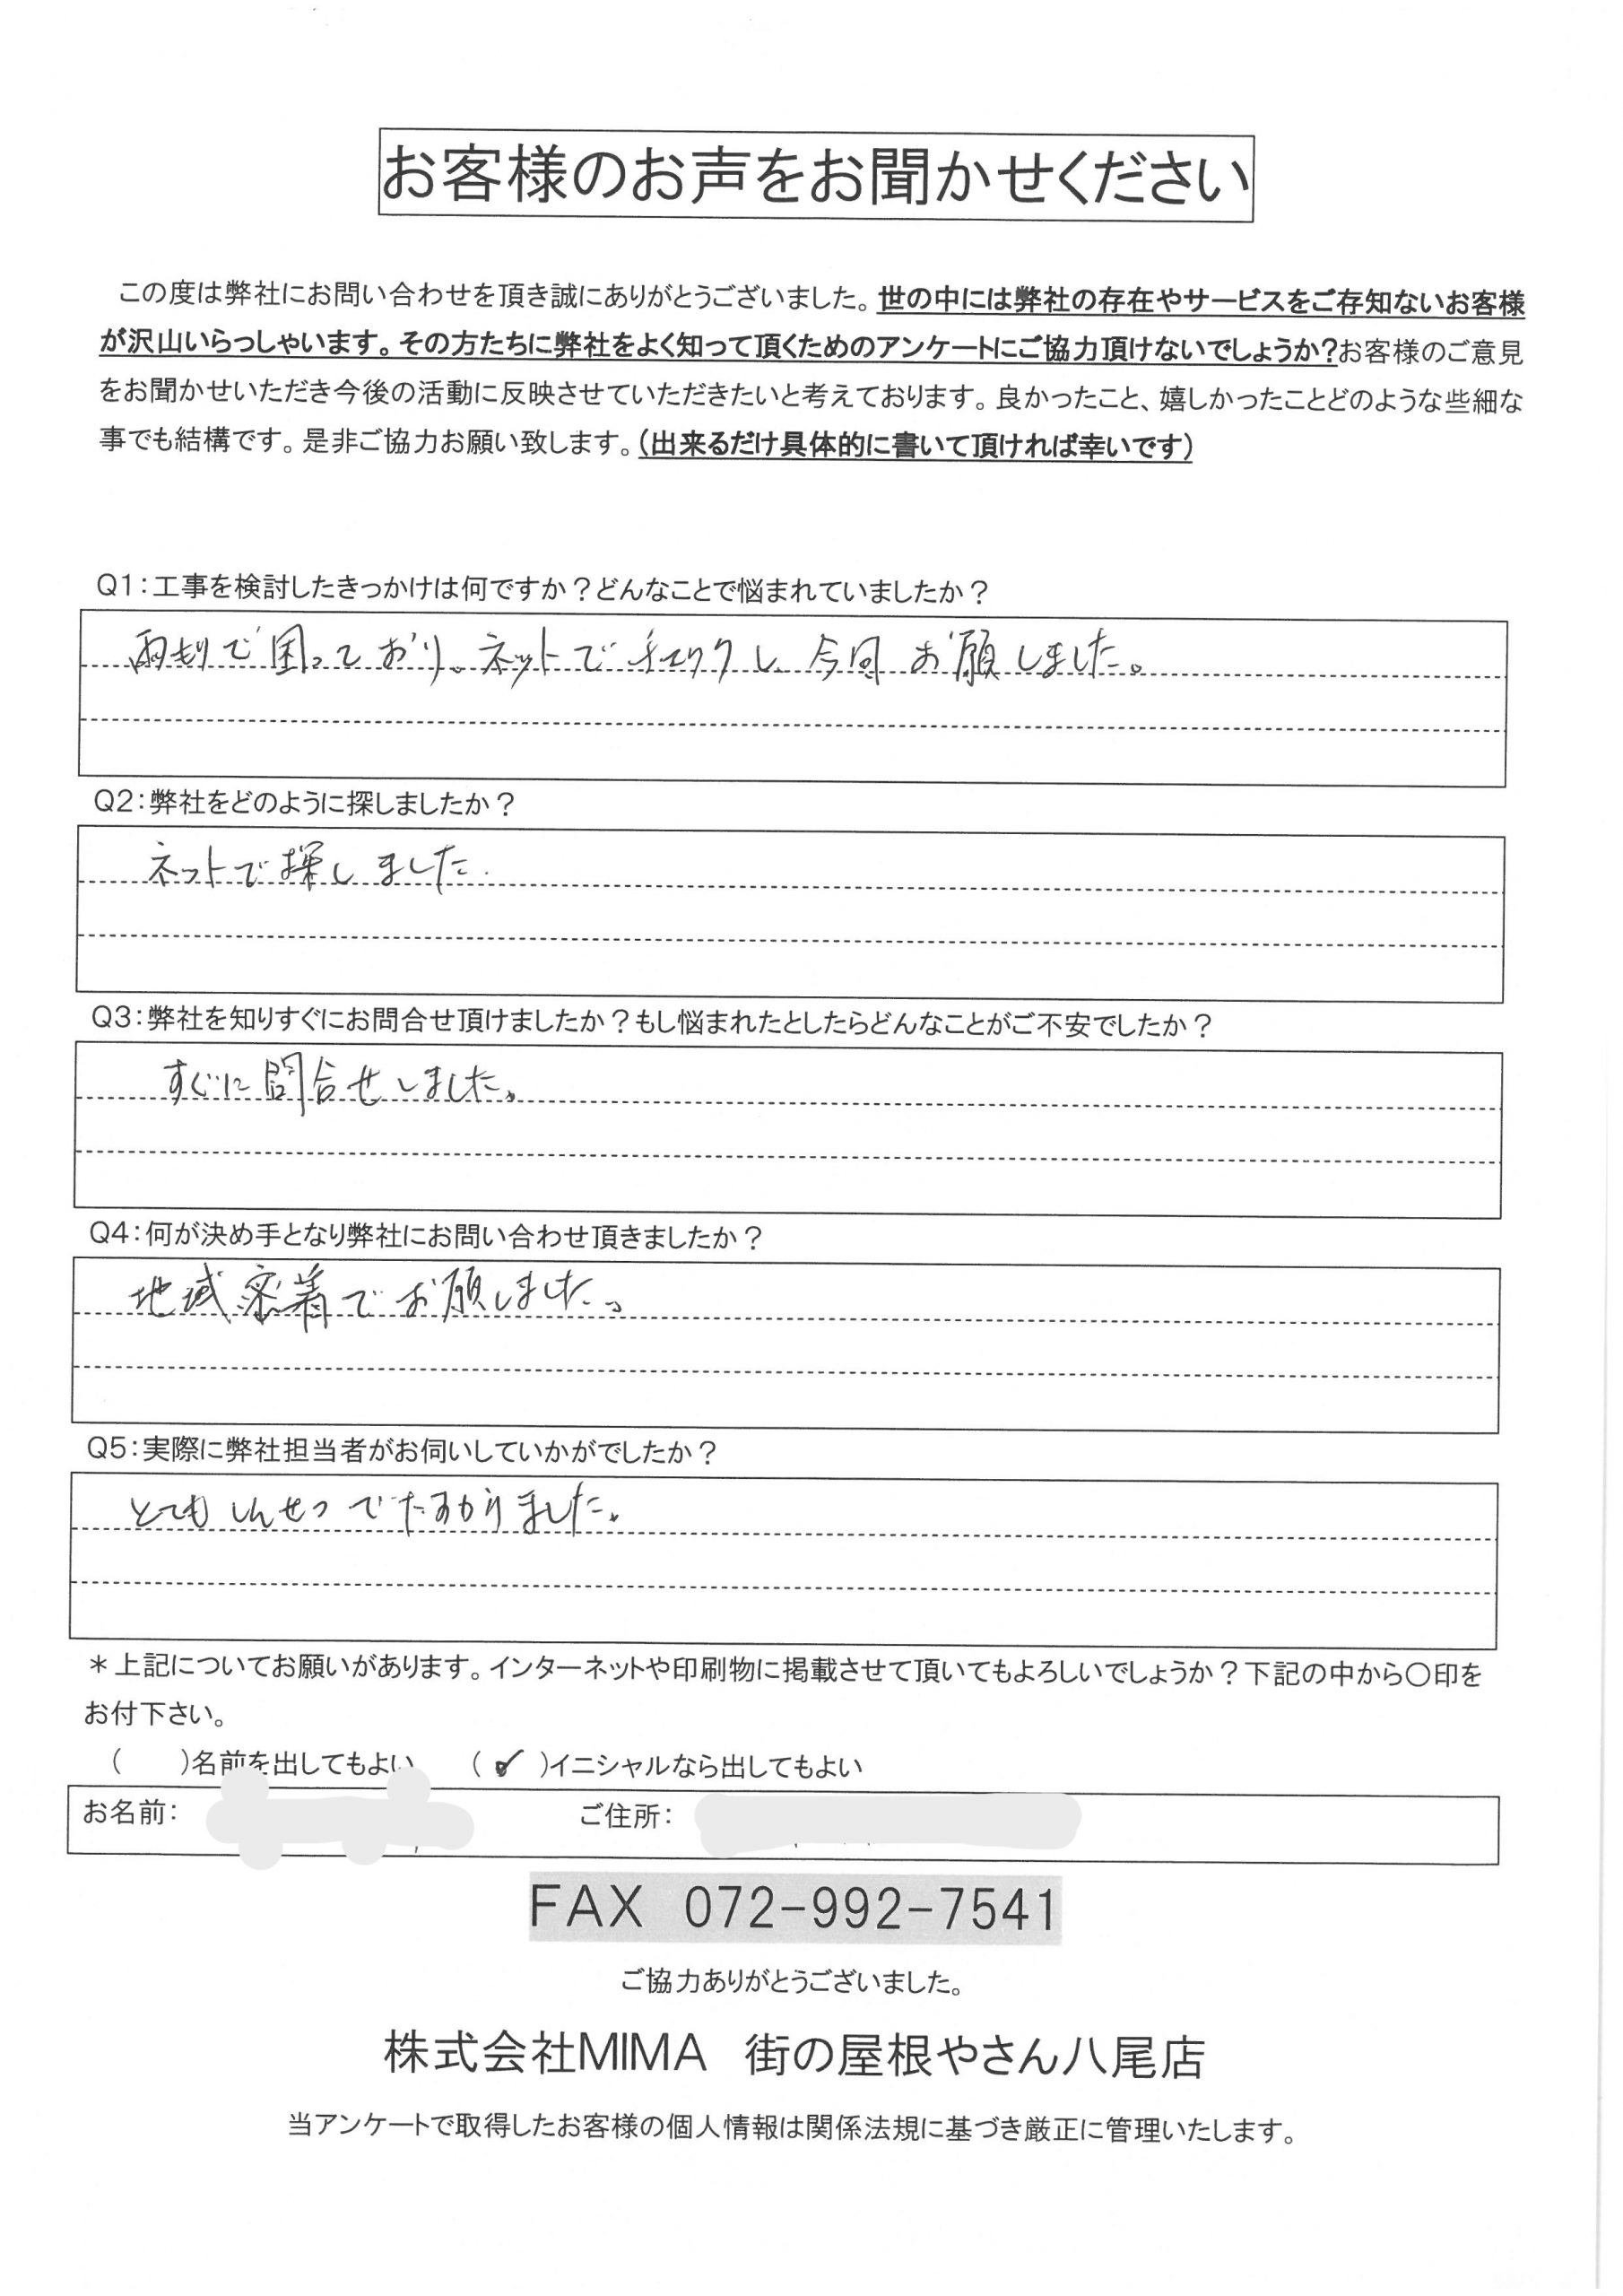 お客様のお声をお聞かせください
この度は弊社にお問い合わせを頂き誠にありがとうございました。世の中には弊社の存在やサービスをご存知ないお客様
が沢山いらっしゃいます。その方たちに弊社をよく知って頂くためのアンケートにご協力頂けないでしょうか?お客様のご意見
をお聞かせいただき今後の活動に反映させていただきたいと考えております。良かったこと、嬉しかったことどのような些細な
事でも結構です。是非ご協力お願い致します。(出来るだけ具体的に書いて頂ければ幸いです)
Q1:工事を検討したきっかけは何ですか?どんなことで悩まれていましたか?
で困っており。ネットでチェックし今回お願しました。
Q2:弊社をどのように探しましたか?
ネットで探しました.
Q3:弊社を知りすぐにお問合せ頂けましたか?もし悩まれたとしたらどんなことがご不安でしたか?
すぐに問合せしました。
Q4:何が決め手となり弊社にお問い合わせ頂きましたか?
地域密着でお願しました。
Q5:実際に弊社担当者がお伺いしていかがでしたか?
とてもしんせつでたすかりました。
*上記についてお願いがあります。インターネットや印刷物に掲載させて頂いてもよろしいでしょうか?下記の中から〇印を
お付下さい。
( )名前を出してもよい (✓)イニシャルなら出してもよい
お名前: ご住所:
FAX 072-992-7541
ご協力ありがとうございました。
株式会社MIMA 街の屋根やさん八尾店
当アンケートで取得したお客様の個人情報は関係法規に基づき厳正に管理いたします。